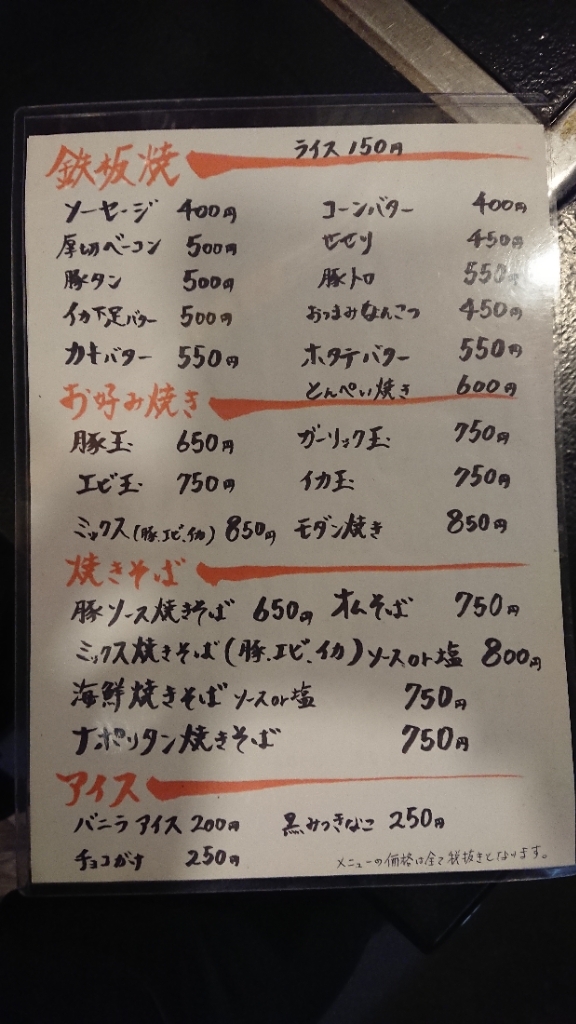 鉄板焼 ライス 150円
ソーセージ 400円 コーンバター 400円
厚切ベーコン 500円 せせり 450円
豚タン 500円 豚トロ 550円
イカ下足バター 500円 おつまみなんこつ 450円
カキバター 550円 ホタテバター 550円
お好み焼き とんぺい焼き 600円
豚玉 650円 ガーリック玉 750円
エビ玉 750円 イカ玉 750円
ミックス(豚.エビ.イカ) 850円 モダン焼き 850円
焼きそば
豚ソース焼きそば 650円 オムそば 750円
ミックス焼きそば(豚.エビ.イカ)ソースor塩 800円
海鮮焼きそば ソースor塩 750円
ナポリタン焼きそば 750円
アイス
バニラアイス 200円 黒みつきなこ 250円
チョコがけ 250円
メニューの価格は全て税抜きとなります。